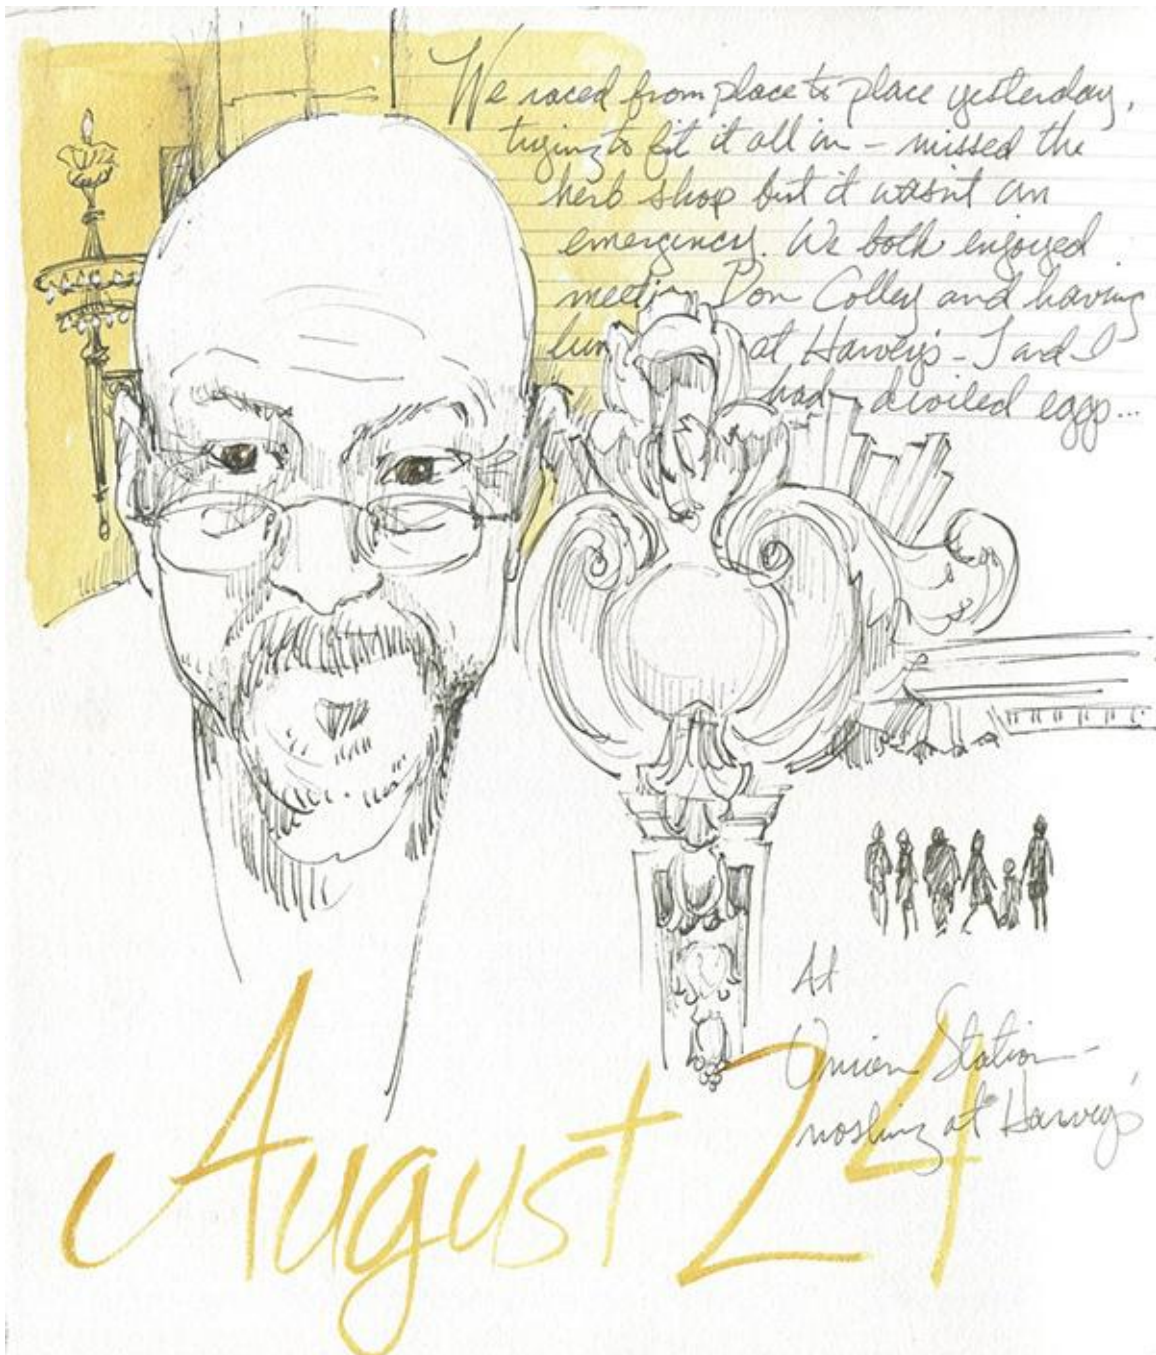 We raced from place to place yesterday,
trying to fit it all in – missed the
herb shop but it wasn't an
emergency. We both enjoyed
meeting Don Colley and having
lun at Harvey's – J and I
had deviled eggs...
At
Union Station –
noshing at Harvey's
August 24